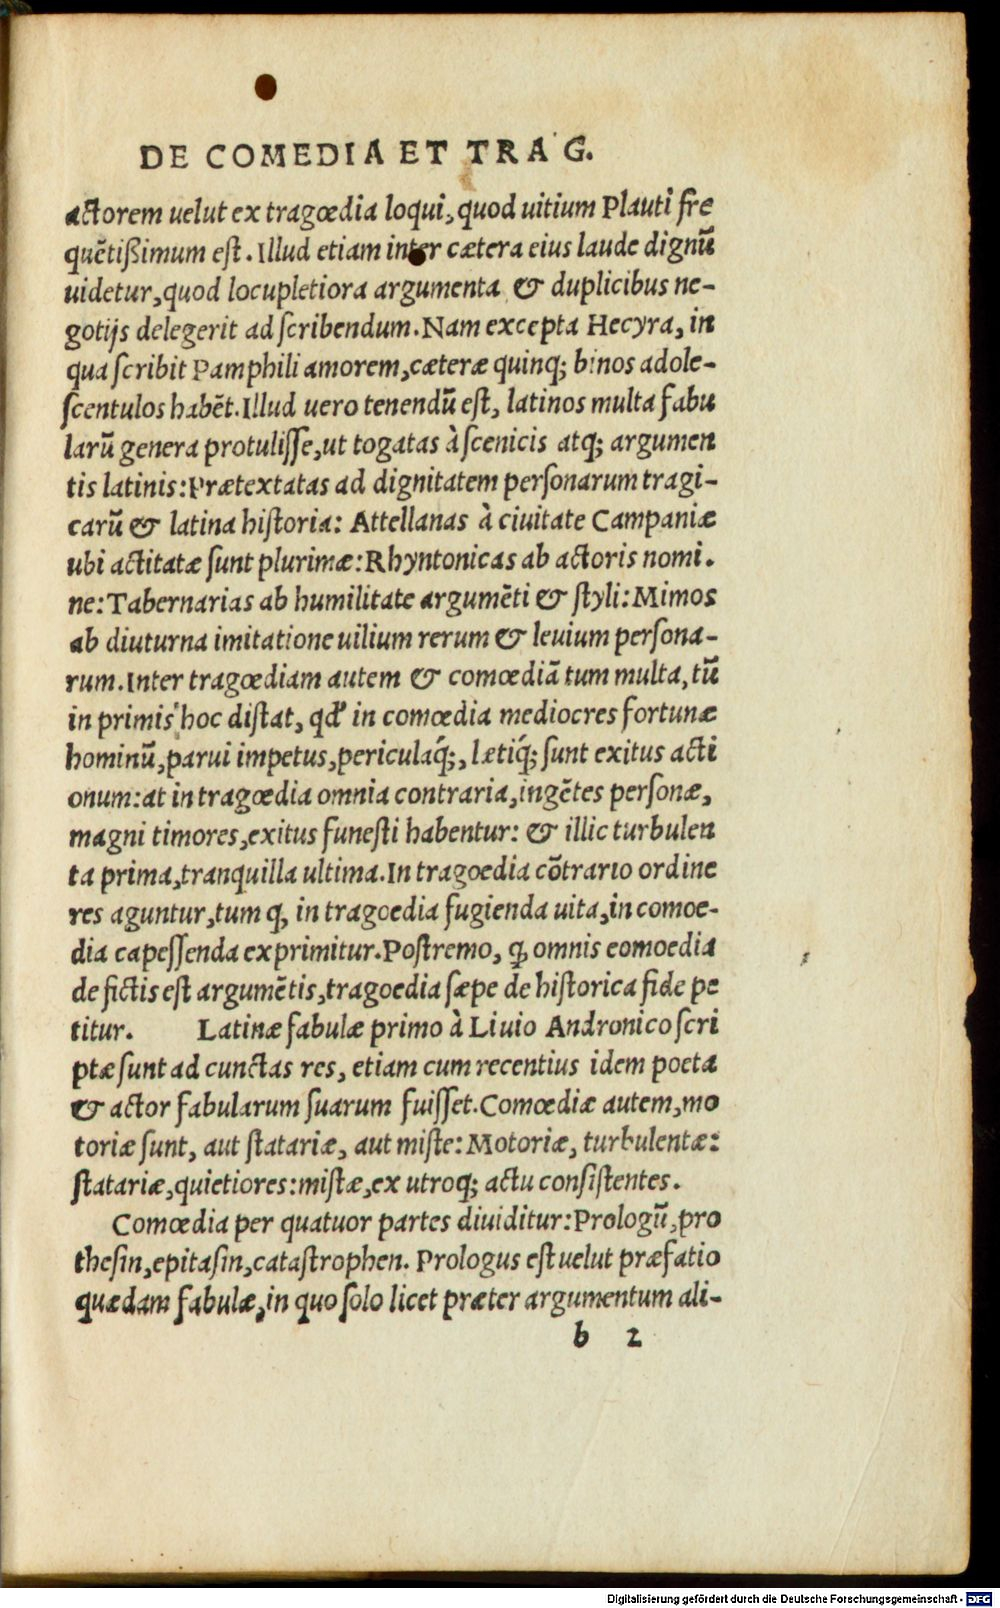 DE COMEDIA ET TRAG.
actorem uelut ex tragœdia loqui, quod uitium Plauti fre
quētißimum est. Illud etiam inter cætera eius laude dignū
uidetur, quod locupletiora argumenta & duplicibus ne-
gotijs delegerit ad scribendum. Nam excepta Hecyra, in
qua scribit Pamphili amorem, cæteræ quinq; binos adole-
scentulos habēt. Illud uero tenendū est, latinos multa fabu
larū genera protulisse, ut togatas à scenicis atq; argumen
tis latinis: Prætextatas ad dignitatem personarum tragi-
carū & latina historia: Attellanas à ciuitate Campaniæ
ubi actitatæ sunt plurimæ: Rhyntonicas ab actoris nomi.
ne: Tabernarias ab humilitate argumēti & styli: Mimos
ab diuturna imitatione uilium rerum & leuium persona-
rum. Inter tragœdiam autem & comœdiā tum multa, tū
in primis hoc distat, qd' in comœdia mediocres fortunæ
hominū, parui impetus, periculaq́;, lætiq́; sunt exitus acti
onum: at in tragœdia omnia contraria, ingētes personæ,
magni timores, exitus funesti habentur: & illic turbulen
ta prima, tranquilla ultima. In tragoedia cōtrario ordine
res aguntur, tum ꝙ in tragoedia fugienda uita, in comoe-
dia capessenda exprimitur. Postremo, ꝙ omnis eomoedia
de fictis est argumētis, tragoedia sæpe de historica fide pe
titur. Latinæ fabulæ primo à Liuio Andronico scri
ptæ sunt ad cunctas res, etiam cum recentius idem poeta
& actor fabularum suarum fuisset. Comœdiæ autem, mo
toriæ sunt, aut statariæ, aut miste: Motoriæ, turbulentæ:
statariæ, quietiores: mistæ, ex utroq; actu consistentes.
Comœdia per quatuor partes diuiditur: Prologū, pro
thesin, epitasin, catastrophen. Prologus est uelut præfatio
quædam fabulæ, in quo solo licet præter argumentum ali-
b 2
Digitalisierung gefördert durch die Deutsche Forschungsgemeinschaft - DFG